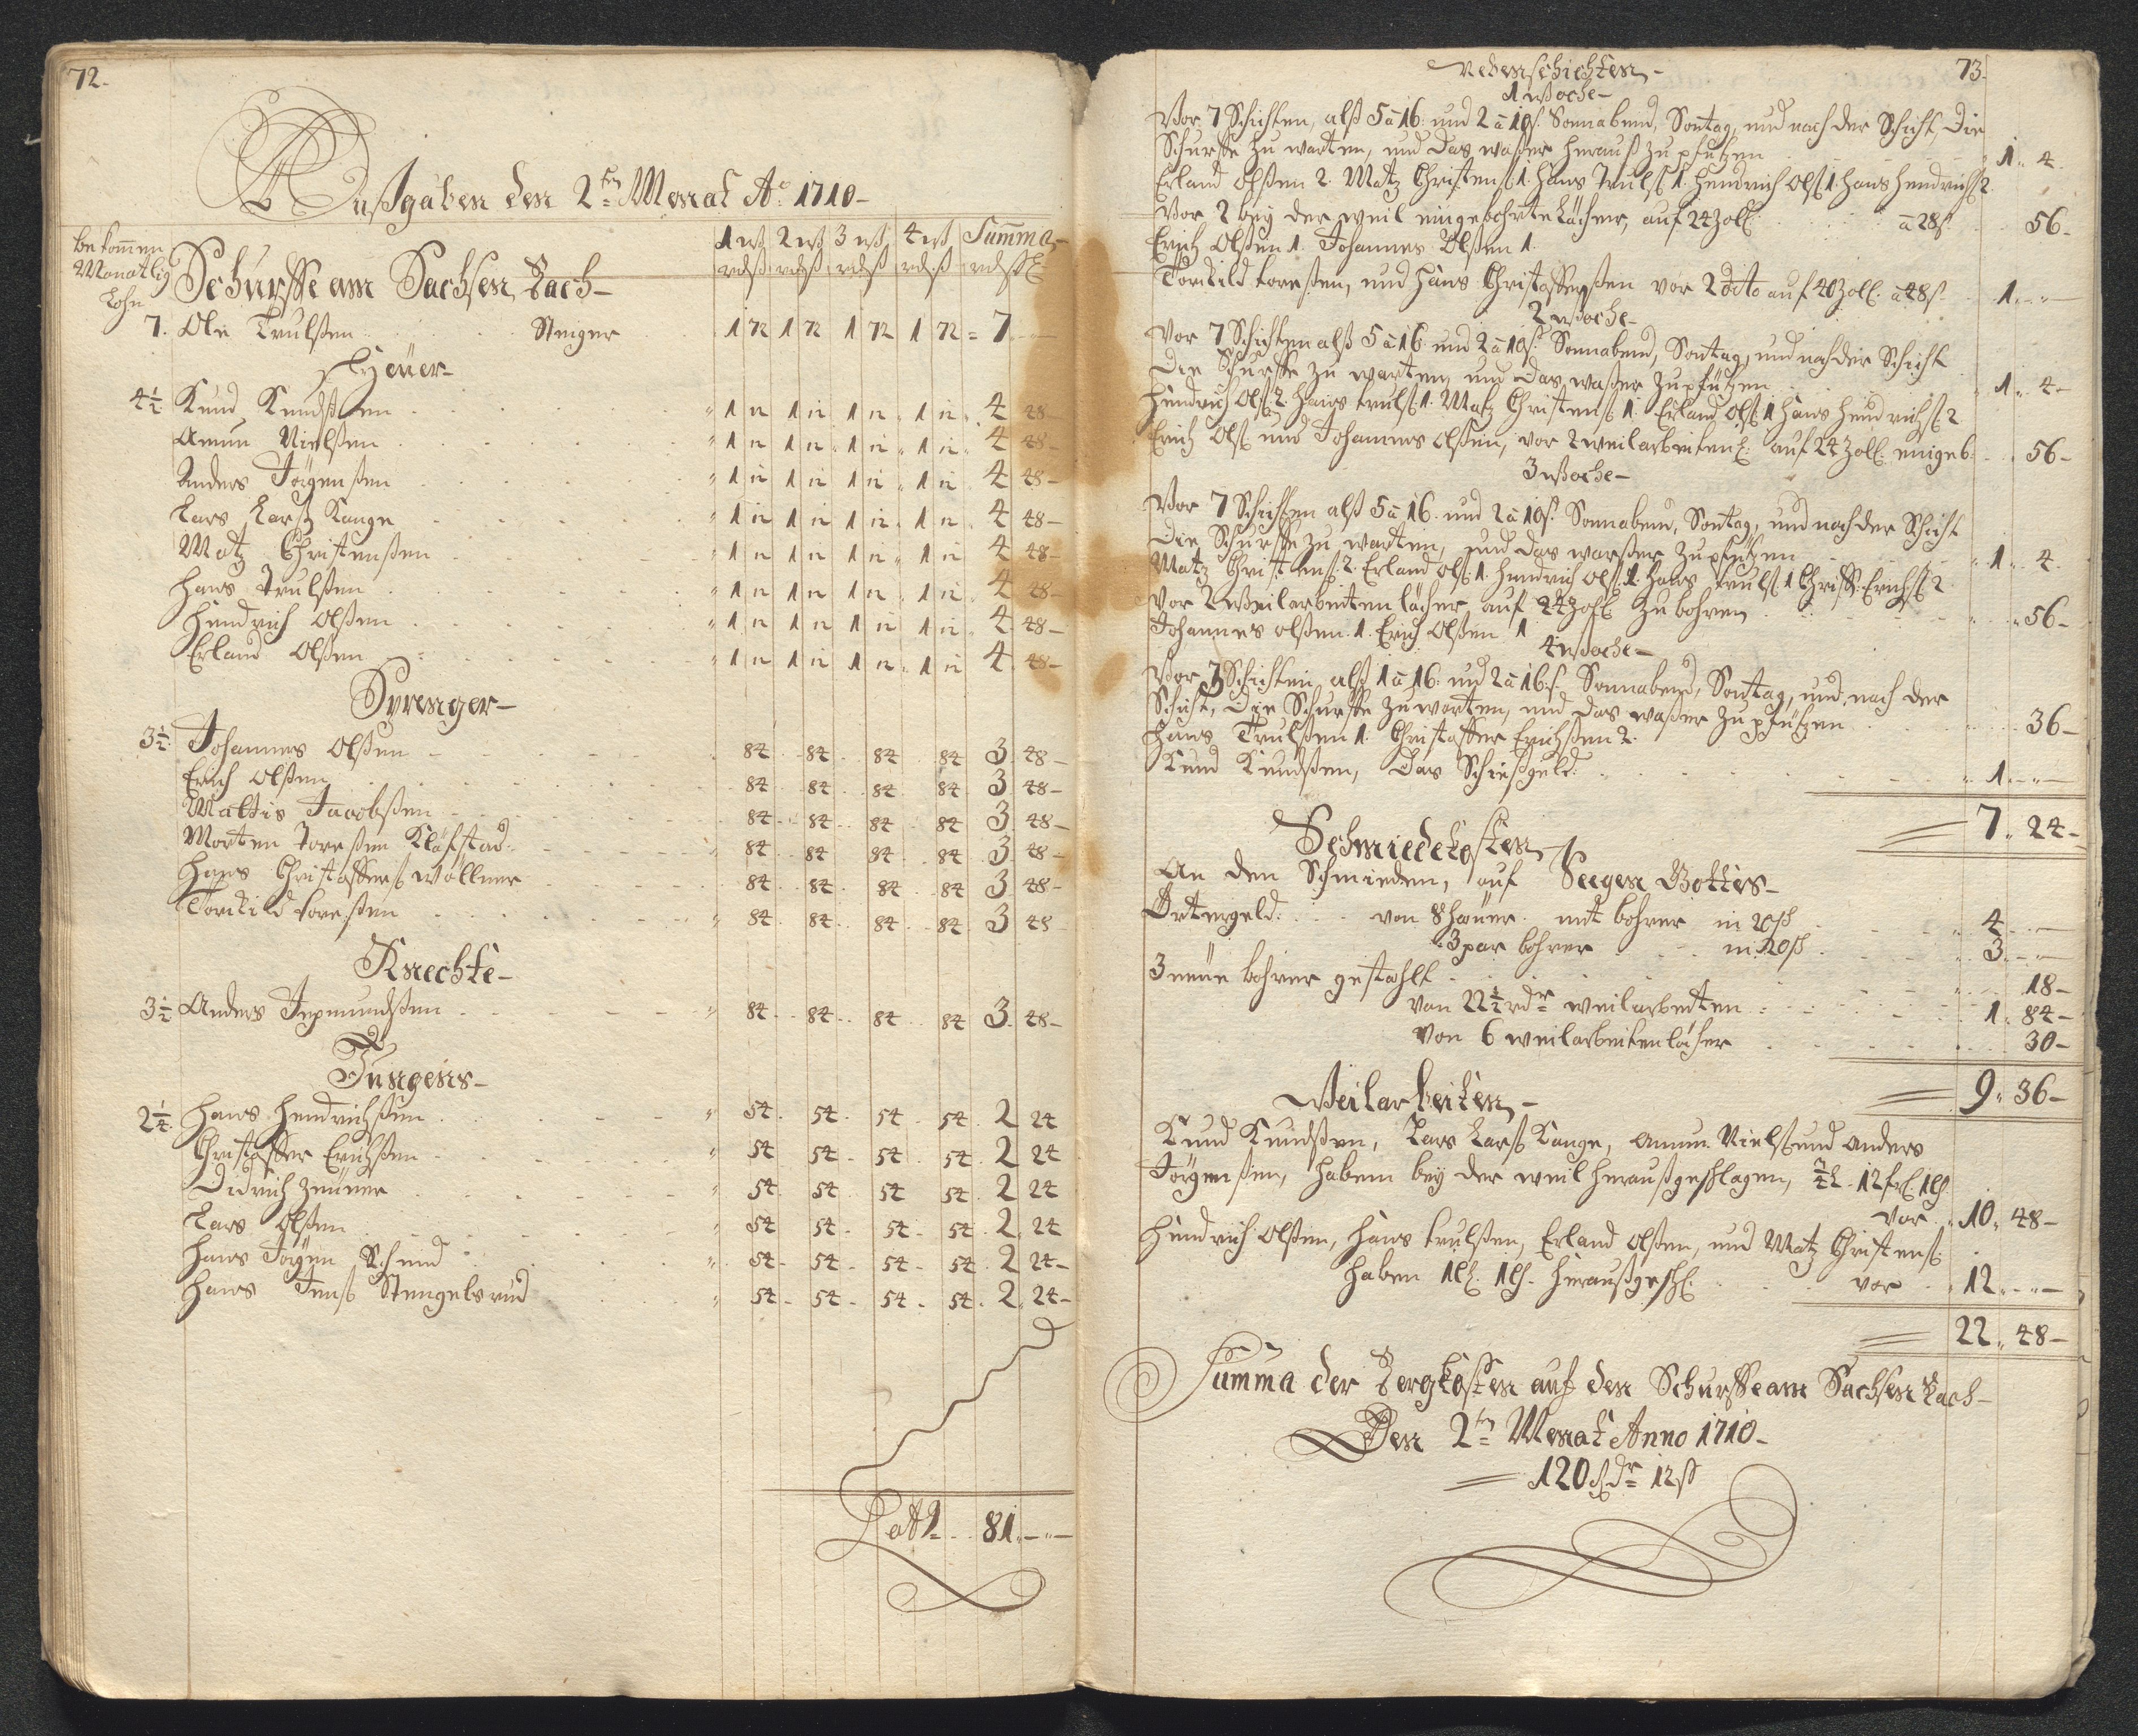 72.
Außgaben den 2ten Monat Ao 1710
Bekom̃en
Monatlig
Lohn
1 wß 2 wß 3 wß 4 wß Sum̃a
Schurffe am Sachsen Bach
7. Ole Trulßen Steiger 1 72 1 72 1 72 1 72 = 7
Heüer
4½ Knud Knudßen 1 12 1 12 1 12 1 12 4 48
Amun Nielßen 1 12 1 12 1 12 1 12 4 48
Anders Jörgenßen 1 12 1 12 1 12 1 12 4 48
Lars Larß Kange 1 12 1 12 1 12 1 12 4 48
Matz Christenßen 1 12 1 12 1 12 1 12 4 48
Hans Trulßen 1 12 1 12 1 12 1 12 4 48
Hendrich Olßen 1 12 1 12 1 12 1 12 4 48
Erland Olßen 1 12 1 12 1 12 1 12 4 48
Sprenger
3½ Johannes Olßen 84 84 84 84 3 48
Erich Olßen 84 84 84 84 3 48
Mattis Jacobßen 84 84 84 84 3 48
Morten Toreßen Kläfstad 84 84 84 84 3 48
Hans Christofferß Wöllner 84 84 84 84 3 48
Torckild Toreßen 84 84 84 84 3 48
Knechte
3½ Anders Jepmundßen 84 84 84 84 3 48
Jungens
2¼ Hans Hendrichßen 54 54 54 54 2 24
Christoffer Erichßen 54 54 54 54 2 24
Didrich Zeüner 54 54 54 54 2 24
Lars Olßen 54 54 54 54 2 24
Hans Jörgen Schmid 54 54 54 54 2 24
Hans Jenß Stengelsrud 54 54 54 54 2 24
Latt 81
73.
Nebenschichten
1 Woche
Vor 7 Schichten, alß 5 à 16 und 2 à 10 s. Sonnabend, Sontag, und nach der Schicht, die
Schurffe zu warten, und das waßer herauß zu pfützen 1 4
Erland Olßen 2. Matz Christenß 1. Hans Trulß 1. Hendrich Olß 1. Hans Hendrichß 2.
Vor 2 bey der weil eingebohrte Löcher, auf 24 Zoll. à 28 s. 56
Erich Olßen 1. Johannes Olßen 1.
Torckild Toreßen, und Hans Christofferßen vor 2 dito auf 40 Zoll. à 48 s. 1
2 Woche
Vor 7 Schichten alß 5 à 16 und 2 à 10 s. Sonnabend, Sontag, und nach der Schicht
die Schurffe zu warten, und das waßer zu pfützen 1 4
Hendrich Olß 2. Hans Trulß 1. Matz Christenß 1. Erland Olß 1 Hans Hendrichß 2
Erich Olß und Johannes Olßen, vor 2 weilarbeiten L. auf 24 Zoll. eingeb: 56
3 Woche
Vor 7 Schichten alß 5 à 16 und 2 à 10 s. Sonnabend, Sontag, und nach der Schicht
die Schurffe zu warten, und das waßer zu pfützen 1 4
Matz Christenß 2. Erland Olß 1. Hendrich Olß 1. Hans Trulß 1 Christ. Erichß 2
Vor 2 Weilarbeiten löcher, auf 24 Zoll zu bohren 56
Johannes Olßen 1. Erich Olßen 1
4 Woche
Vor 3 Schichten alß 1 à 16 und 2 à 10 s. Sonnabend, Sontag, und nach der
Schicht, die Schurffe zu warten, und das waßer zu pfützen 36
Hans Trulßen 1. Christoffer Erichßen 2.
Knud Knudßen, das Schießgeld 1
7 24
Schmiedekosten
An den Schmieden, auf Seegen Gottes
Örtergeld von 8 Haüer mit bohrer 4
3 par bohrer 3
3 neüe bohrer gestahlt 18
von 22½ rdr weilarbeiten 1 84
von 6 weilarbeiten löcher 30
9 36
Weilarbeiten
Knud Knudßen, Lars Larß Kange, Amun Nielß und Anders
Jörgenßen, haben bey der weil heraußgeschlagen,
vor 10 48
Hendrich Olßen, Hans Trulßen, Erland Olßen, und Matz Christenß
haben heraußgeschl. vor 12
22 48
Summa der Bergkosten auf den Schurffe am Sachsen Bach
Den 2ten Monat Anno 1710
120 rdr 12 ß